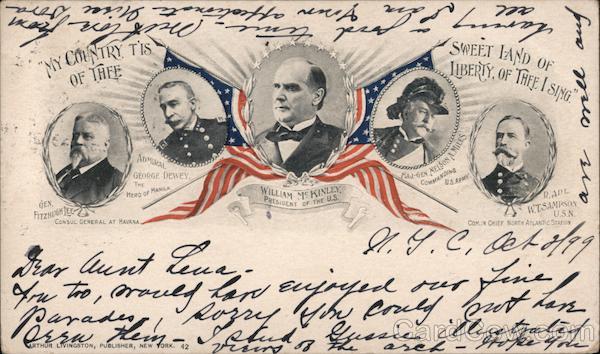 "MY COUNTRY 'TIS
OF THEE
SWEET LAND OF
LIBERTY, OF THEE I SING."
GEN.
FITZHUGH LEE
CONSUL GENERAL AT HAVANA.
ADMIRAL
GEORGE DEWEY,
THE
HERO OF MANILA.
WILLIAM McKINLEY,
PRESIDENT OF THE U.S.
MAJ-GEN. NELSON A. MILES
COMMANDING
U.S. ARMY
R. ADL.
W.T. SAMPSON,
U.S.N.
COM. IN CHIEF NORTH ATLANTIC STATION
N.Y.C, Oct 2/99
Dear Aunt Lena—
You too, would have enjoyed our fine
Parades, sorry you could not have
seen them— I send Gussie illustrated
views of the arch — hope you
are well and
all
having a good time—
I am Your affectionate Niece
ARTHUR LIVINGSTON, PUBLISHER, NEW YORK. 42
CardCow.com